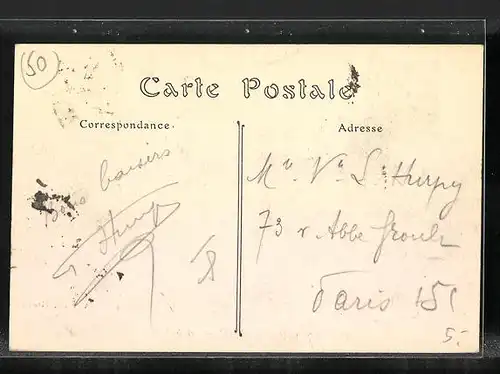 50
Carte Postale
Correspondance.
Adresse
Bons baisers
Mr Vr L. Hurpy
73 r Abbé Groult
Paris 15e
5.-